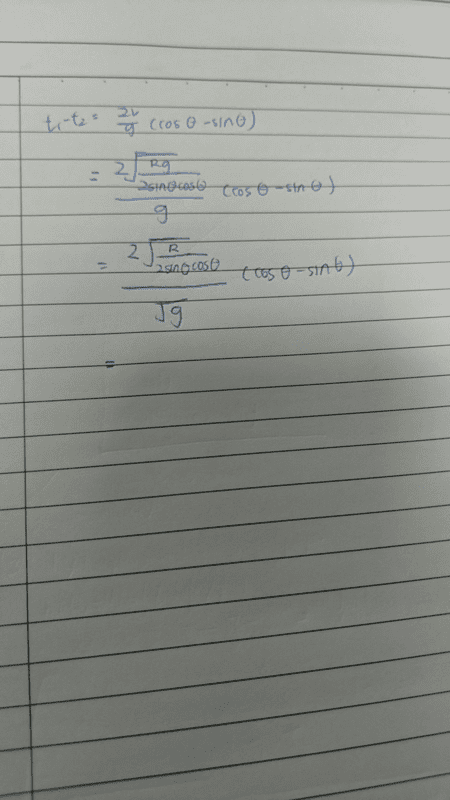 t₁-t₂ = 2v/g (cos θ - sin θ)
= 2√(Rg/2sinθcosθ)/g (cos θ - sin θ)
= 2√(R/2sinθcosθ)/√g (cos θ - sin θ)
=